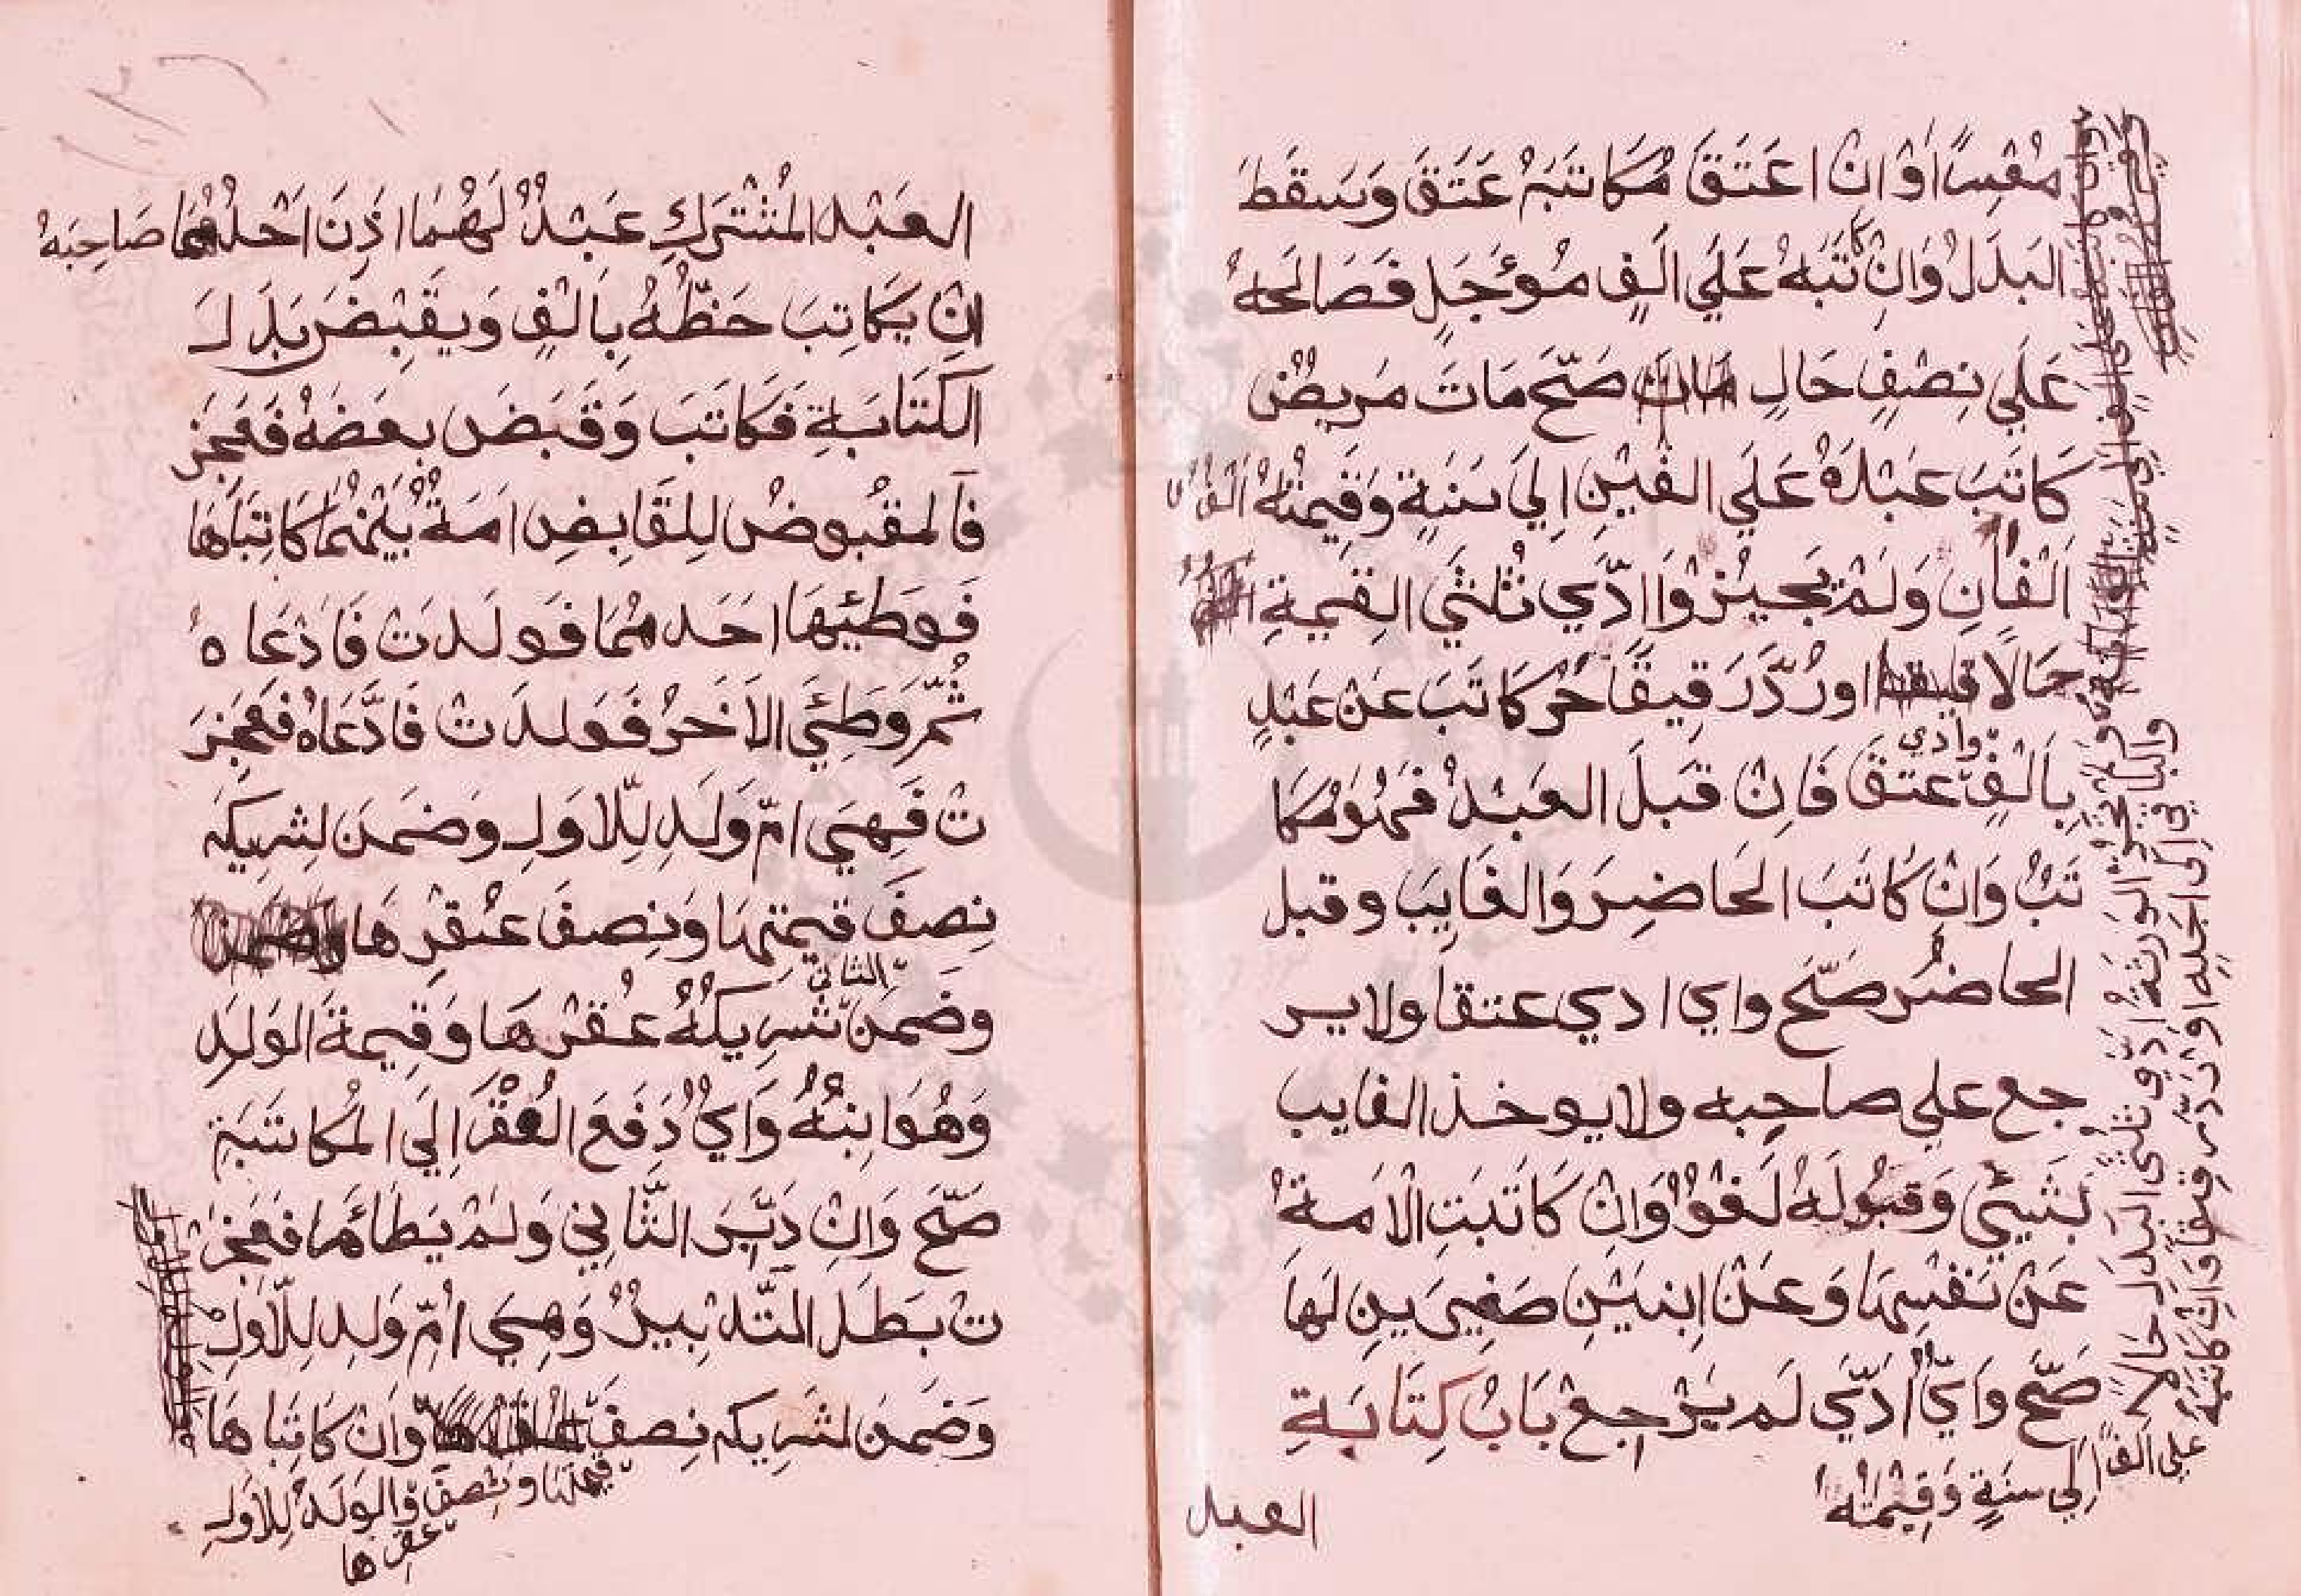 مُفْسِاً اَوْ اِنْ اعَتَقَ مُكَاتَبَهُ عَتَقَ وَسَقَطَ
البَدَلُ وَاِنْ كَاتَبَهُ عَلَي اَلَفٍ مُؤَجَلٍ فَصَالَحهُ
عَلَي نِصْفٍ حَالٍ صَحّ مَاتَ مَرِيضٌ
كَاتَبَ عَبْدَهُ عَلَي الفَيْنِ اِلَيَ سَنَةٍ وَقَيمتُهُ اَلْفٌ
اَلْفَانِ وَلَمْ يَجيْزُوْا ادّي ثُلثَي القِيمةِ
حَالًا اورُدَّ رَقيقًا حُرٌ كَاتَبَ عَنْ عَبْدٍ
بِاَلْفٍ وادي عَتَقَ فَاِنْ قَبَلَ العَبْدُ فَهُوَ مُكَا
تَبٌ وَاِنْ كَاتَبَ الحَاضِرَ وَالغَايِبَ وقبل
الحاضرُ صَحّ واي ادي عتقا ولاير
جع علي صاحبه ولايوخذ الغايب
بَشيئي وَقَبُولَهُ لَغْوٌ وَاِنْ كَاتَبَتِ الْاَمَةُ
عَنْ نَفْسِهَا وَعَنْ اِبنَيْنِ صَغِيرَينِ لَهَا
صَحّ وَايٌّ ادّي لَم يَرْجِعْ بَابُ كِتَابَةِ
العبد
وَلَمْ يَجُزْ الوَرَثةُ ادّي ثلثَي البَدَل حَالًا
والباقي الَى اجَلِهِ اَوْ رُدَّ رقيقاً وَاِنْ كَاتبَهُ
علي الفٍ
اِلَي سنَةٍ وَقيمْتُهُ
العَبْد المُشْتَرَكِ عَبْدٌ لَهُمَا اذِنَ اَحَدُهُمَا صَاحِبَهُ
اَنْ يَكَاتِبَ حَظّهُ بِاَلْفٍ وَيقَبْضَ بَدَلَ
الكَتَابَةِ فَكَاتَبَ وَقَبَضَ بعَضَهُ فَعَجَز
فَالمقبُوضُ لِلقَابِضِ امَةٌ بَيْنَهُمَا كَاتَبَاهَا
فَوطَئِهَا احَدهُمَا فَولَدتْ فَادْعَاهُ
ثُمّ وَطِئَي الاَخَرُ فَوَلدَتْ فَادَّعَاهُ فعَجزَ
تْ فَهِيَ امّ وَلَدٍ لِلّاوَلِ وَضمَنَ لِشريكه
نِصفَ قيمَتِهَا وَنِصفَ عُقْرِهَا
وضَمنَ الثاني شريكُهُ عُقْرَهَا وَقِيمةَ الوَلَدِ
وَهُوَ ابِنُهُ وَايٌ دَفَعَ العُقْرَ اِلَي المُكَاتَبَةِ
صَحّ وَاِنْ دَبّرَ الثّانِي وَلَمْ يَطَاهَا فعَجَز
تْ بطَلَ التّدْبِيرُ وَهِيَ امّ وَلدٍ لِلّاوَلِ
وَضَمنَ لشرِيكه نِصفَ وَاِنْ كَاتَبا هَا
قيمتها ونصف عقرها وَالوَلَدُ لِلاوَلِ